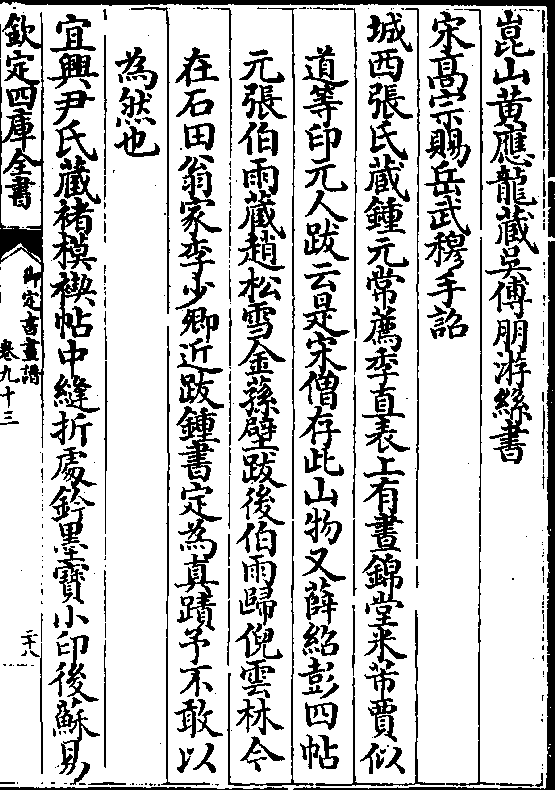 崑山黄應龍藏吳傅朋游絲書
宋髙宗賜岳武穆手詔
城西張氏藏鍾元常薦季直表上有晝錦堂米芾賈似
道等印元人跋云是宋僧存此山物又薛紹彭四帖
元張伯雨藏趙松雪金蓀壁跋後伯雨歸倪雲林今
在石田翁家李少卿近跋鍾書定為真蹟予不敢以
為然也
宜興尹氏藏褚模禊帖中縫折處鈐墨寶小印後蘇易
欽定四庫全書
御定書畫譜
卷九十三
二十八